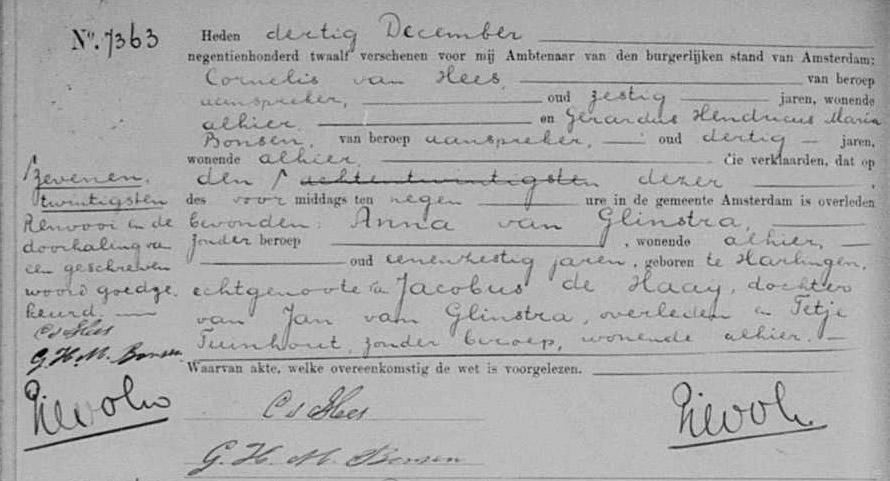 No. 7363
Heden dertig December
negentienhonderd twaalf verschenen voor mij Ambtenaar van den burgerlijken stand van Amsterdam:
Cornelis van Hees, van beroep
aanspreker, oud zestig jaren, wonende
alhier, en Gerardus Hendricus Maria
Bonsen, van beroep aanspreker, oud dertig jaren,
wonende alhier, die verklaarden, dat op
den achtentwintigsten dezer
des voor middags ten negen ure in de gemeente Amsterdam is overleden
bevonden: Anna van Glinstra,
zonder beroep, wonende alhier,
oud eenenzestig jaren, geboren te Harlingen,
echtgenoote van Jacobus de Haay, dochter
van Jan van Glinstra, overleden en Tetje
Teunhout, zonder beroep, wonende alhier.
Waarvan akte, welke overeenkomstig de wet is voorgelezen.
zevenen
twintigsten
Renvooi en de
doorhaling van
een geschreven
woord goedge
keurd
C v Hees
G. H. M. Bonsen
C v Hees
G. H. M. Bonsen